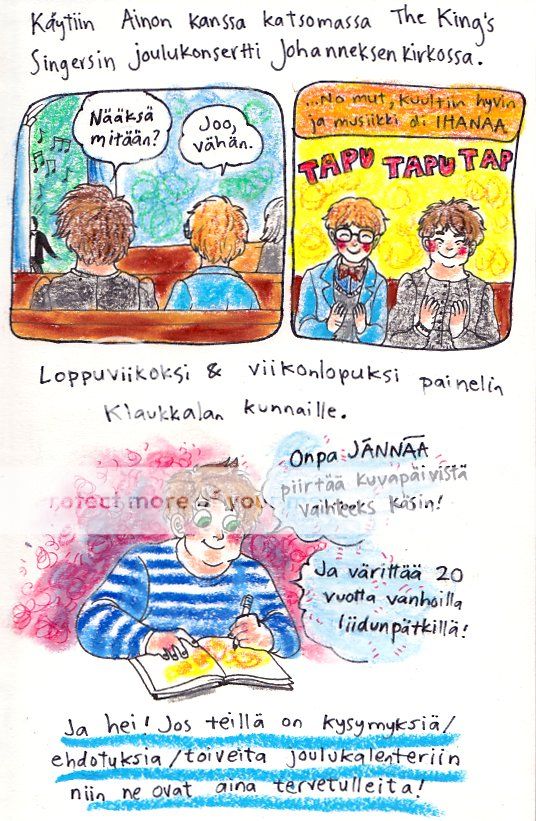 Käytiin Ainon kanssa katsomassa The King's
Singersin joulukonsertti Johanneksenkirkossa.
Nääksä
mitään?
Joo,
vähän.
...No mut, kuultiin hyvin
ja musiikki oli IHANAA
TAPU TAPU TAP
Loppuviikoksi & viikonlopuksi painelin
Klaukkalan kunnaille.
Onpa JÄNNÄÄ
piirtää kuvapäivistä
vaihteeks käsin!
rotect more of you
Ja värittää 20
vuotta vanhoilla
liidunpätkillä!
Ja hei! Jos teillä on kysymyksiä/
ehdotuksia/toiveita joulukalenteriin
niin ne ovat aina tervetulleita!